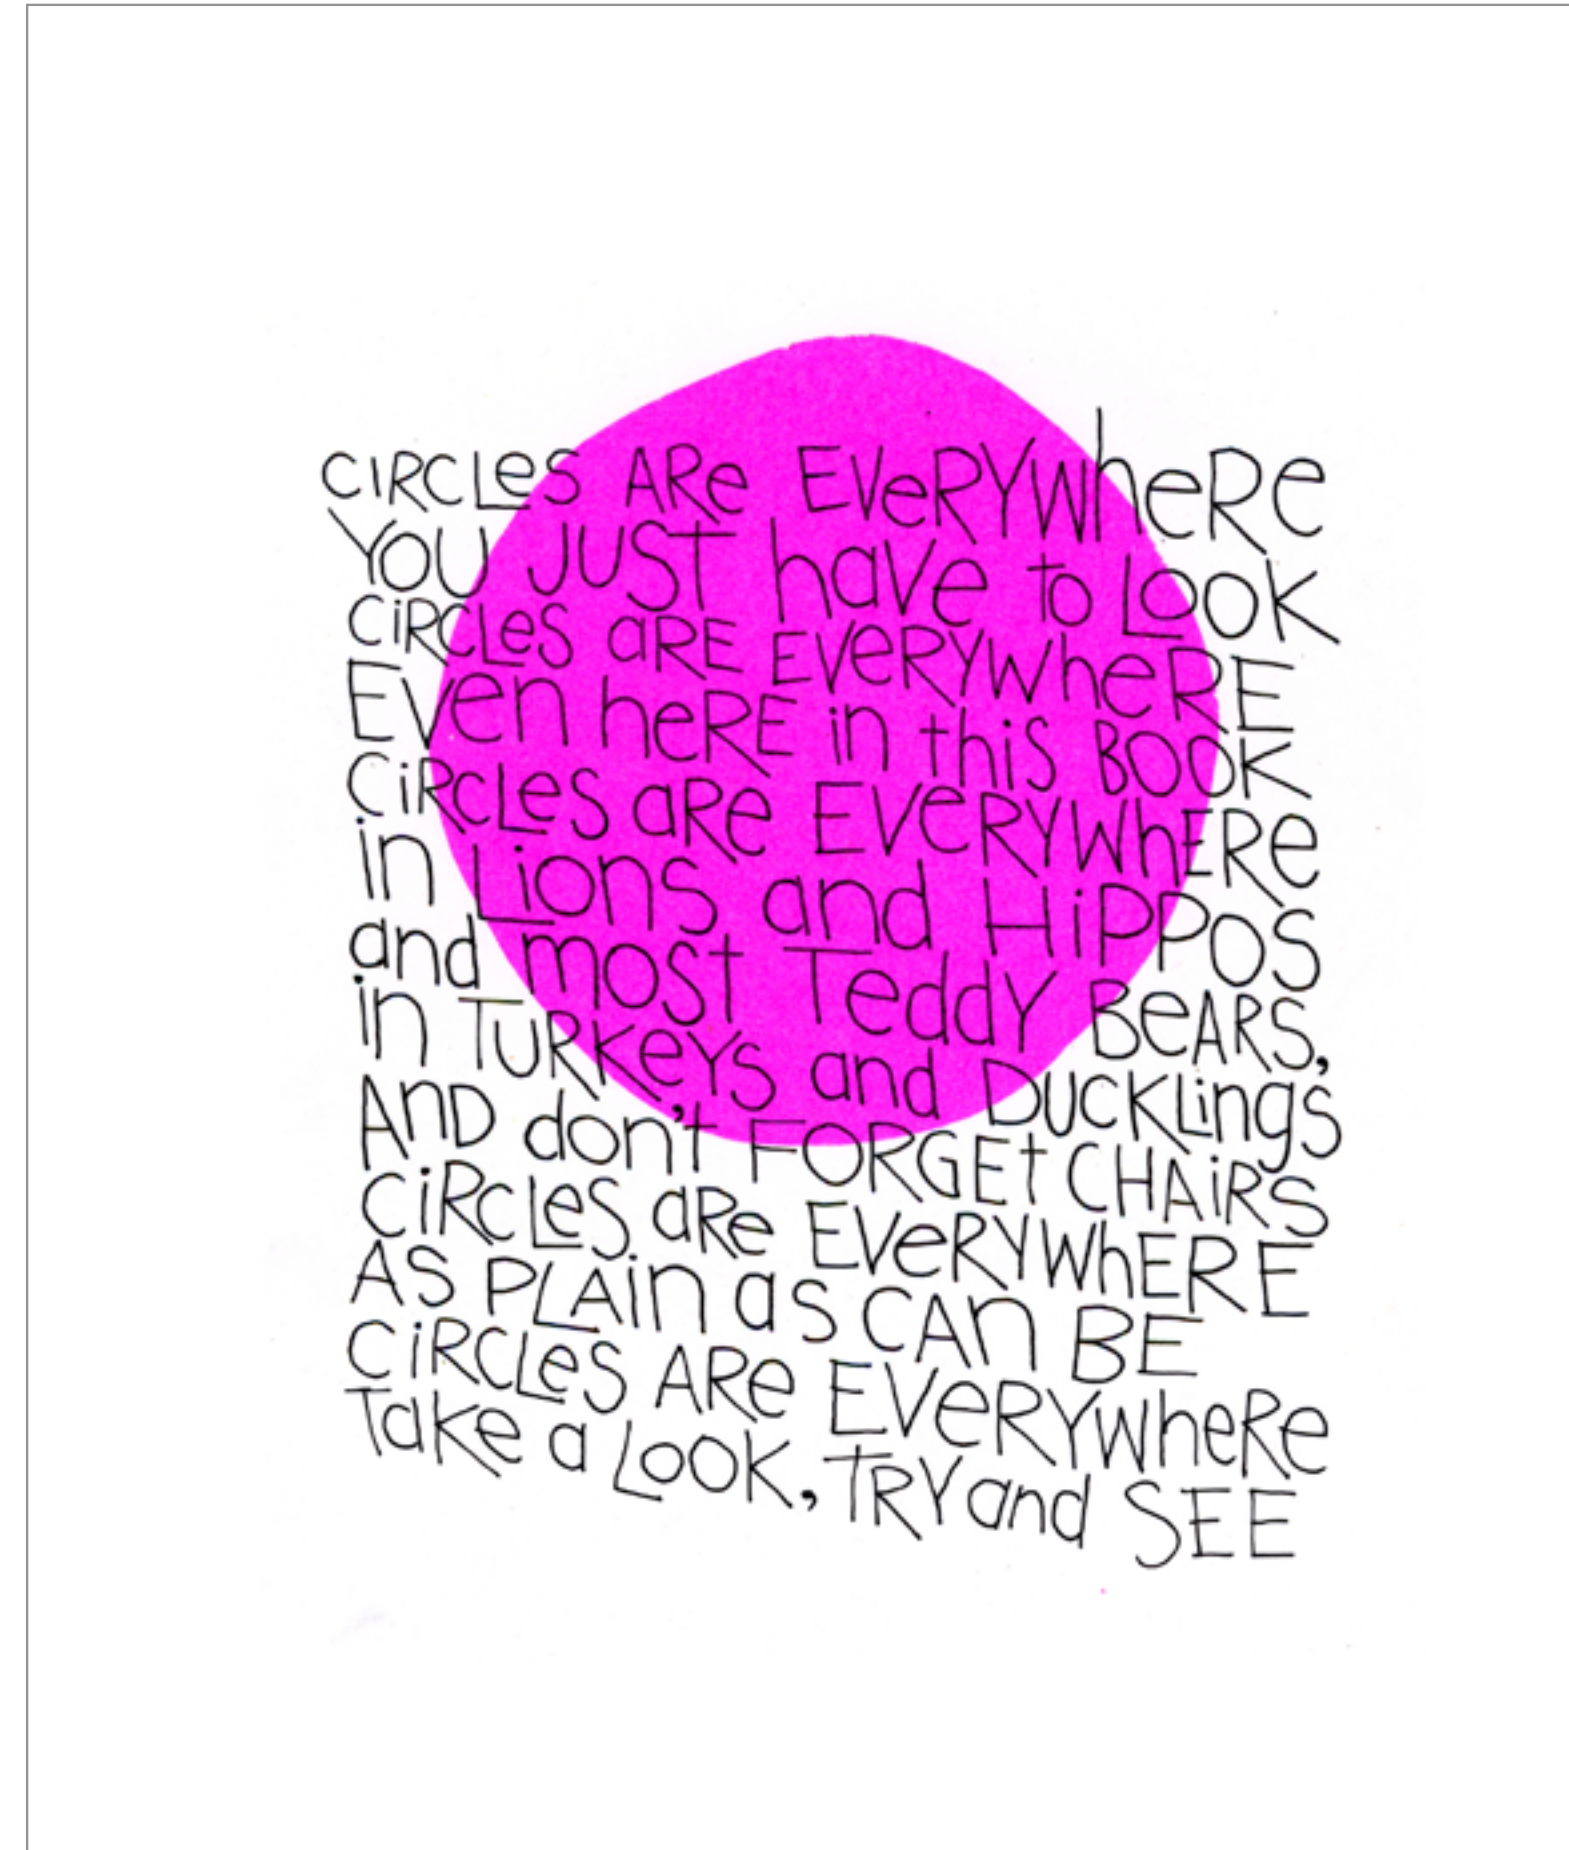 CIRCLes ARe EVeRYWheRe
YOU JUST haVe to LOOK
CiRCLes aRE EVeRYWheRE
Even heRE in this BOOK
CiRCLes aRe EVeRYWhERe
in Lions and HiPPOS
and most Teddy BeARS,
in TURKeYs and DUCKLings
AnD don't FORGEt CHAiRS
CiRCLeS aRe EVeRYWhERE
AS PLAin as CAn BE
CiRCLeS ARe EVeRYWheRe
Take a LOOK, TRY and SEE